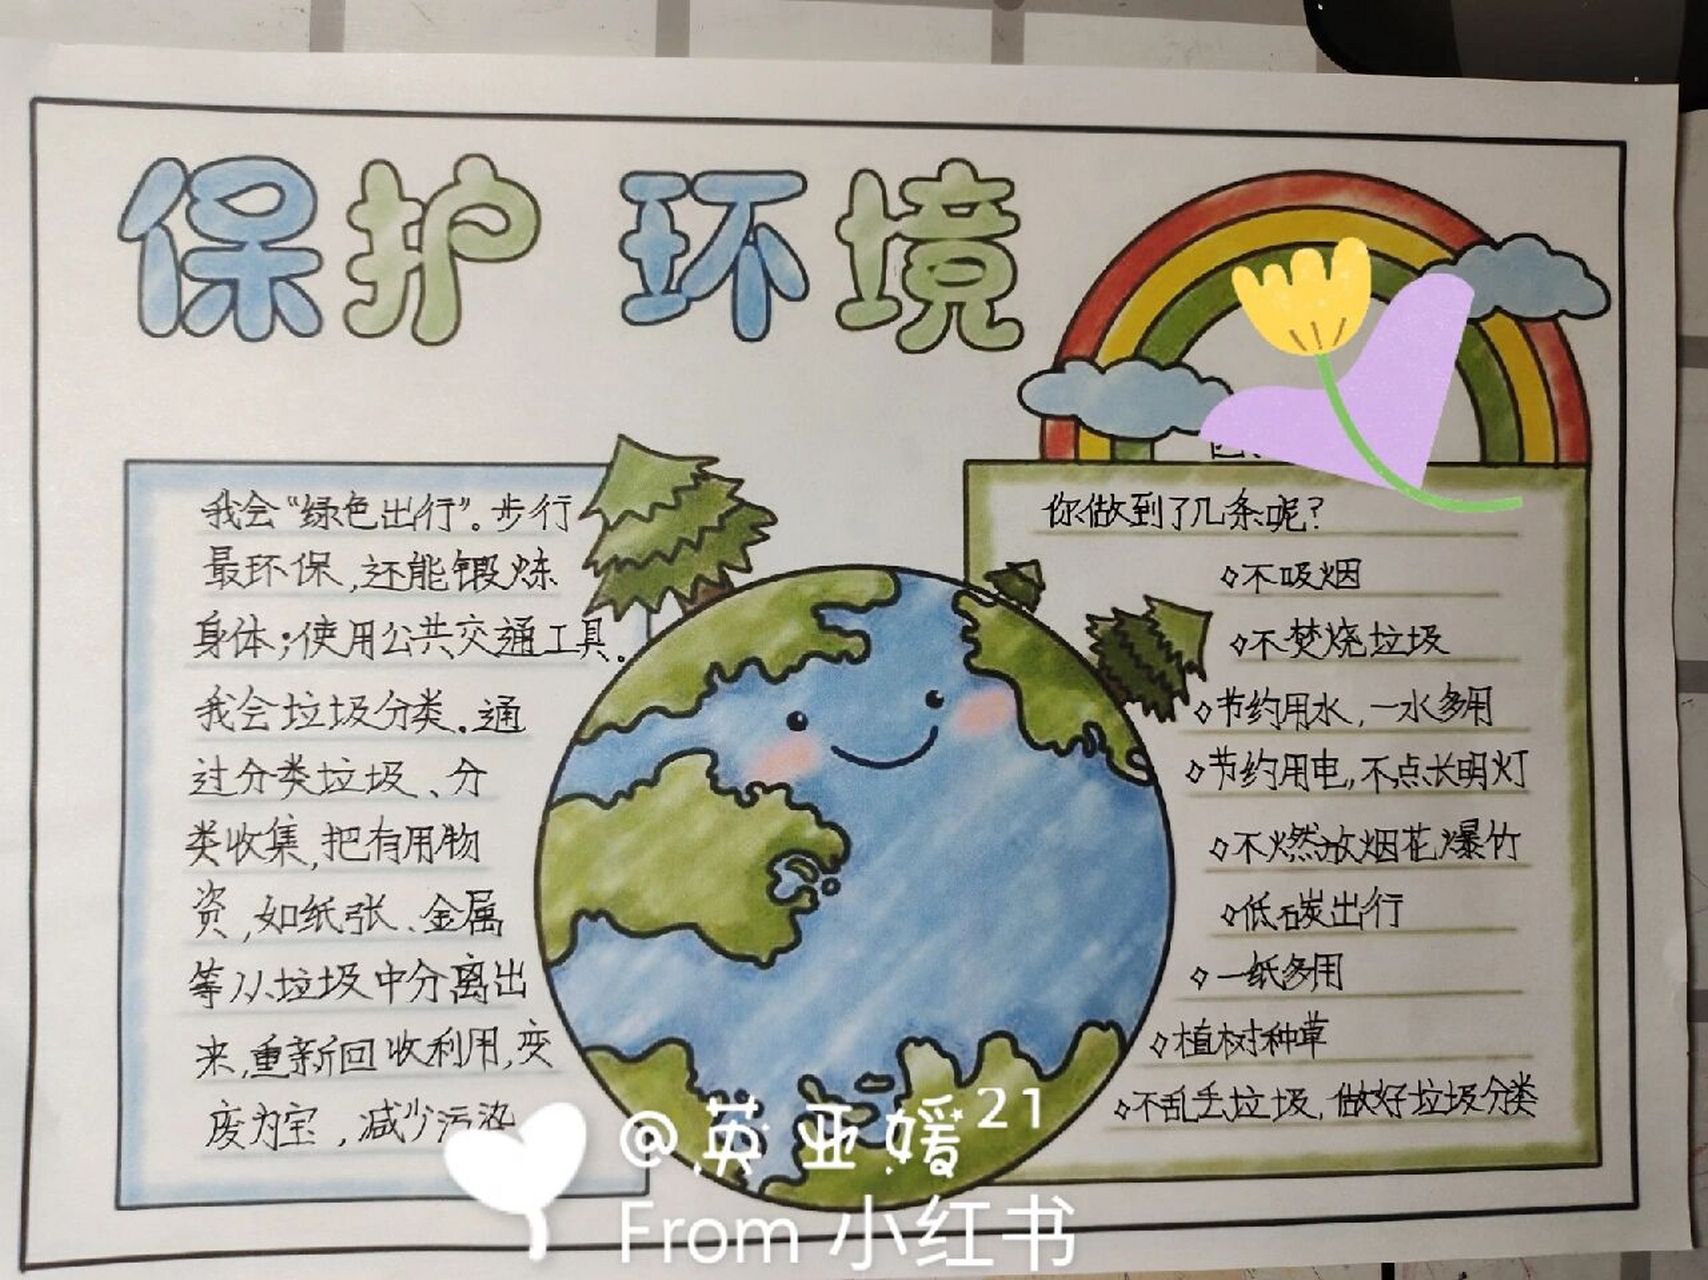 保护 环境
我会“绿色出行”。步行
最环保,还能锻炼
身体;使用公共交通工具。
我会垃圾分类。通
过分类垃圾、分
类收集,把有用物
资,如纸张、金属
等从垃圾中分离出
来,重新回收利用,变
废为宝,减少污染
你做到了几条呢?
◇不吸烟
◇不焚烧垃圾
◇节约用水,一水多用
◇节约用电,不点长明灯
◇不燃放烟花爆竹
◇低碳出行
◇一纸多用
◇植树种草
◇不乱丢垃圾,做好垃圾分类
@英亚媛21
From 小红书